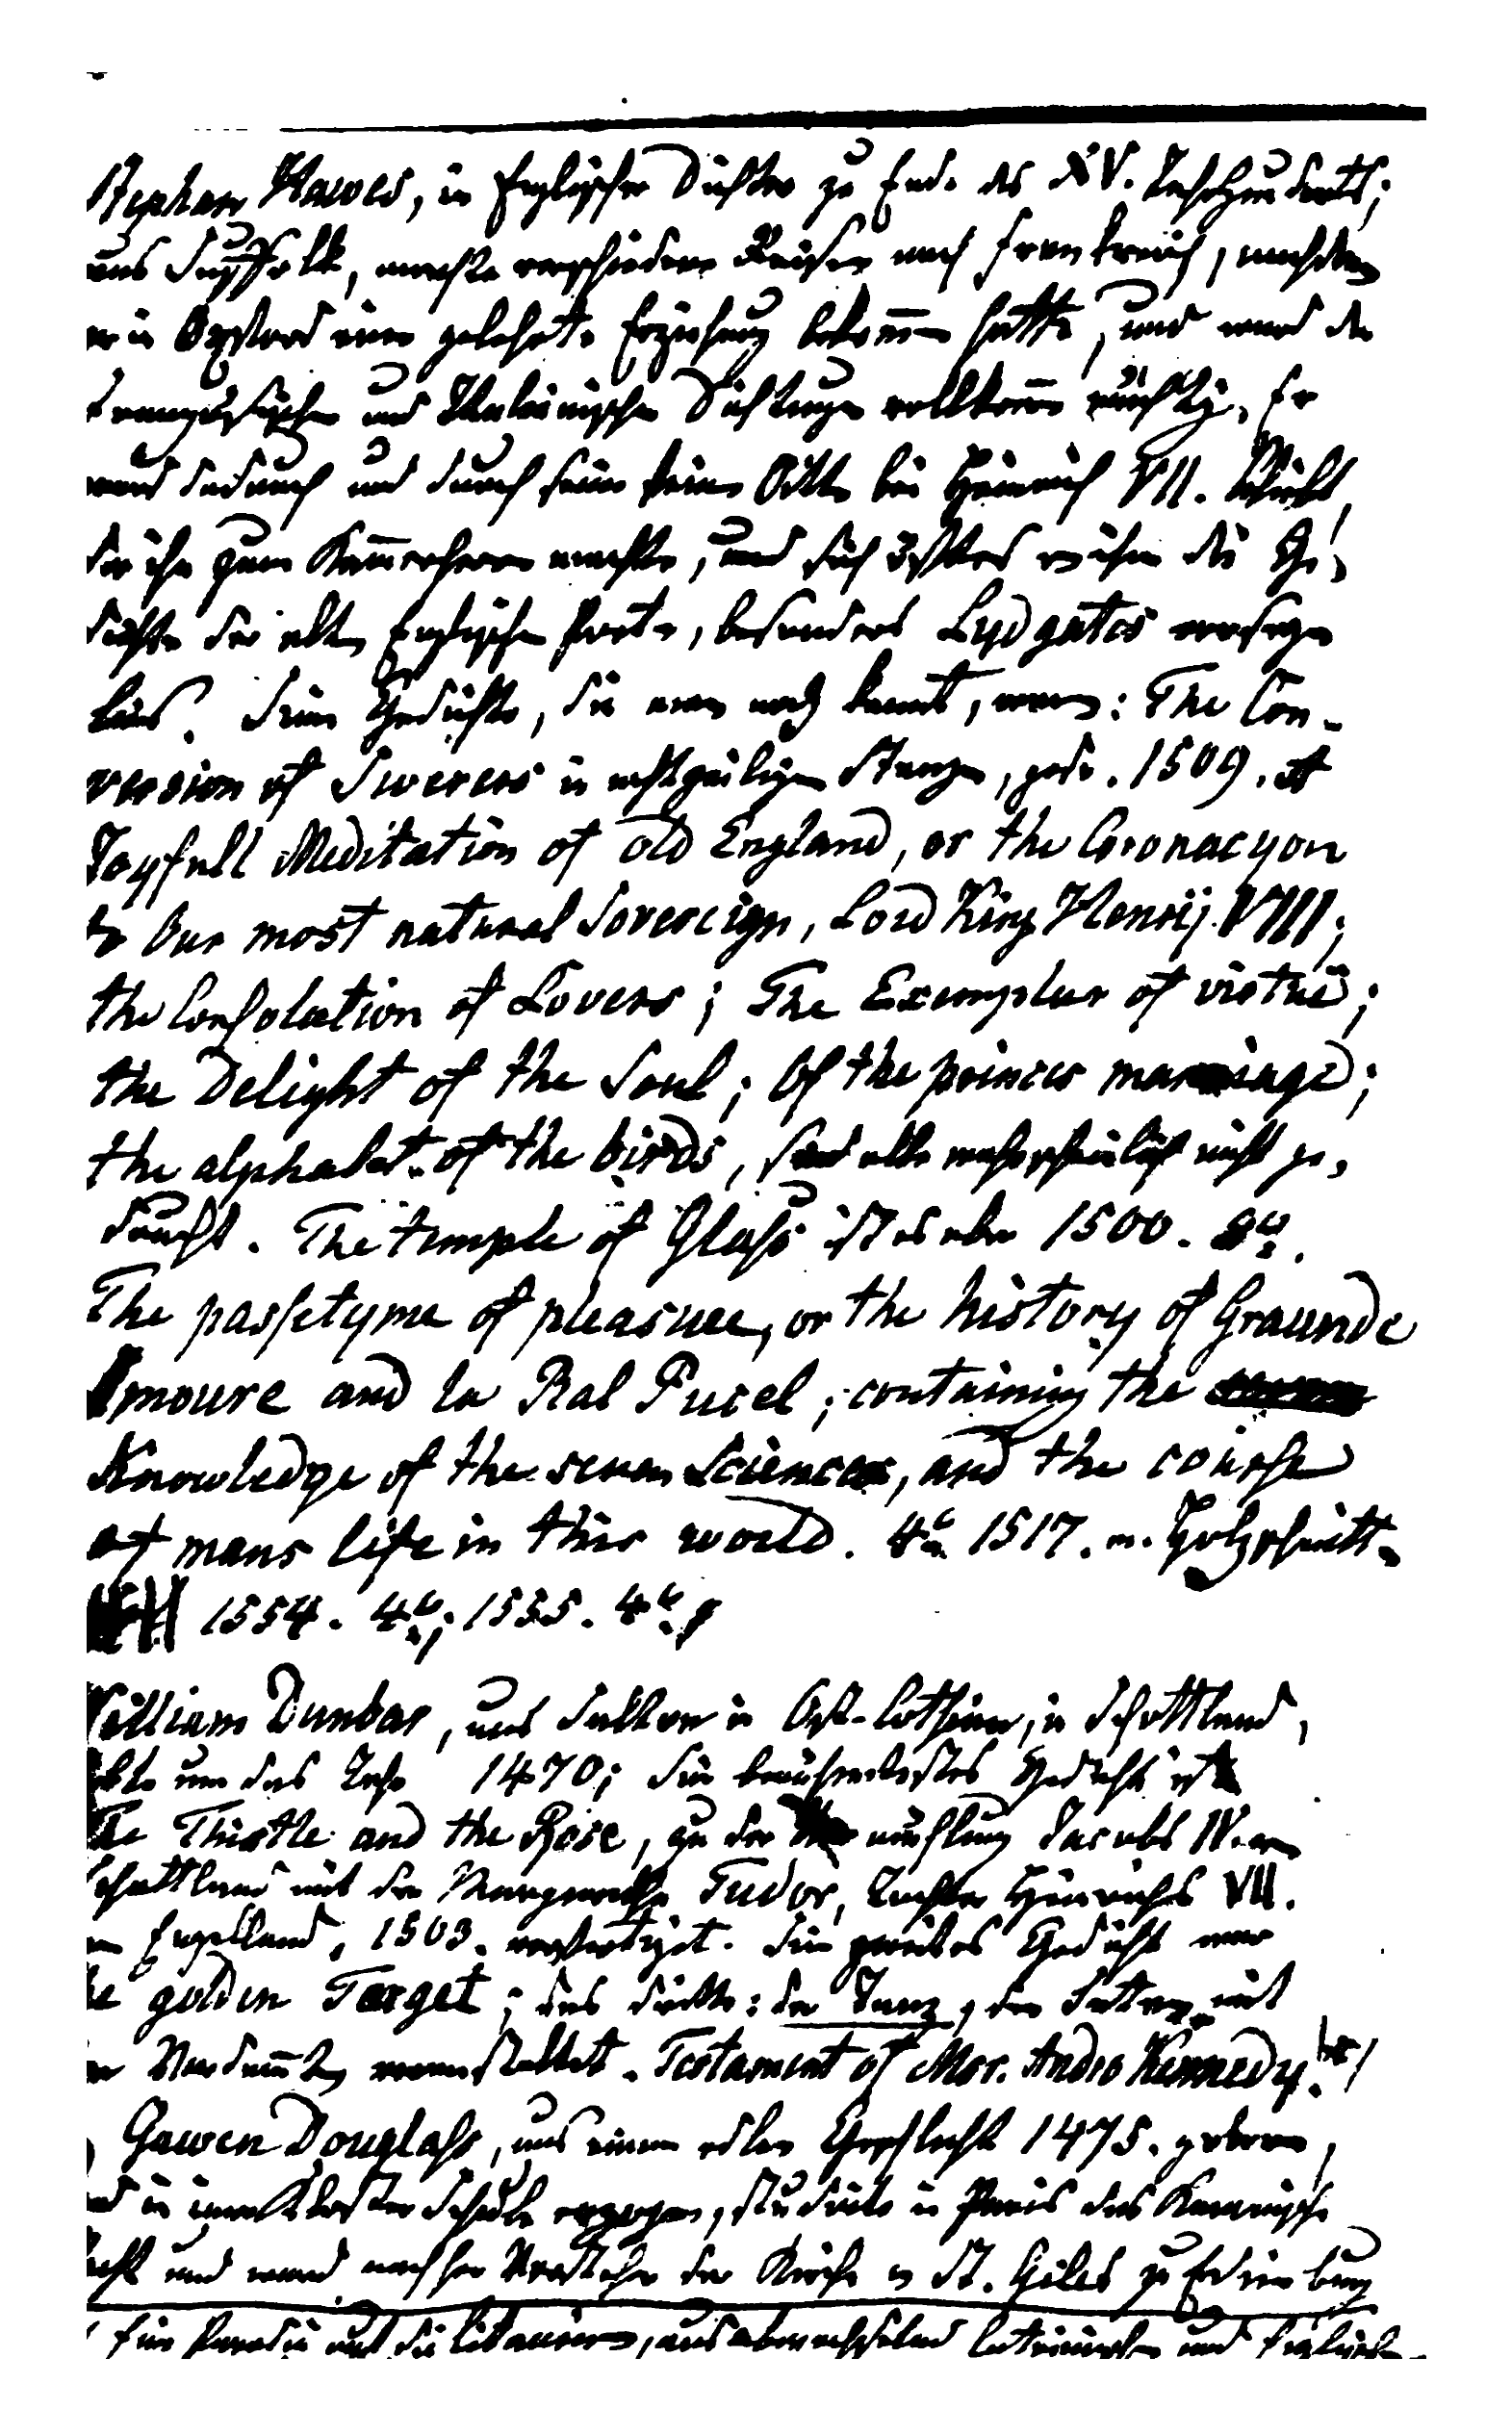 Stephan Hawes, ein Englischer Dichter zu Ende des XV. Jahrhunderts;
aus Suffolk, machte verschiedene Reisen nach Frankreich, nachdem
er in Oxford eine gelehrte Erziehung bekom̅en hatte, und ward der
Französischen und Italiänischen Dichtungen vollkom̅en mächtig. Er
ward dadurch und durch seine feine Sitten bei Heinrich VII. beliebt,
der ihn zum Kam̅erherrn machte, und sich öfters von ihm die Ge-
dichte der alten Englischen Poeten, besonders Lydgates vorsagen
lies. Seine Gedichte, die man noch kennt, waren: The Con-
version of Swerers in achtzeiligen Stanzen, gedr. 1509. A
Joyfull Meditation of old England, or the Coronacyon
to Our most natural Sovereign, Lord King Henrij VIII;
the Consolation of Lovers; The Exemplar of virtue;
the Delight of the Soul; Of the princes marriage;
the alphabet of the birds, sind alle wahrscheinlich nicht ge-
druckt. The temple of Glass ist es aber 1500. 8vo.
The passetyme of pleasure, or the history of Graunde
Amoure and la Bal Pucel; containing the
Knowledge of the seven Sciences, and the course
of mans life in this world. 4to 1517. m. Holzschnitt.
1554. 4to; 1555. 4to
William Dunbar, aus Salton in Ost-Lothian, in Schottland,
lebte um das Jahr 1470; sein berühmtestes Gedicht ist
The Thistle and the Rose, zu der mählung Jacobs IV. von
Schottland mit der Margaretha Tudor, Tochter Heinrichs VII.
von Engelland, 1503. verfertiget. Sein zweites Gedicht war
the golden Target; das dritte: der Tanz, den Satan mit
den Verdam̅ten veranstaltet. Testament of Mor. Andro Kennedy.
Gawen Douglass, aus einem edlen Geschlecht 1475. geboren,
und in einer Kloster Schule erzogen, studierte in Paris das Kanonische
Recht und ward nachher Vorsteher der Kirche von St. Giles zu Edinburg
Eine Parodie auf die Litaneien, aus abwechselnd lateinischen und Englischen